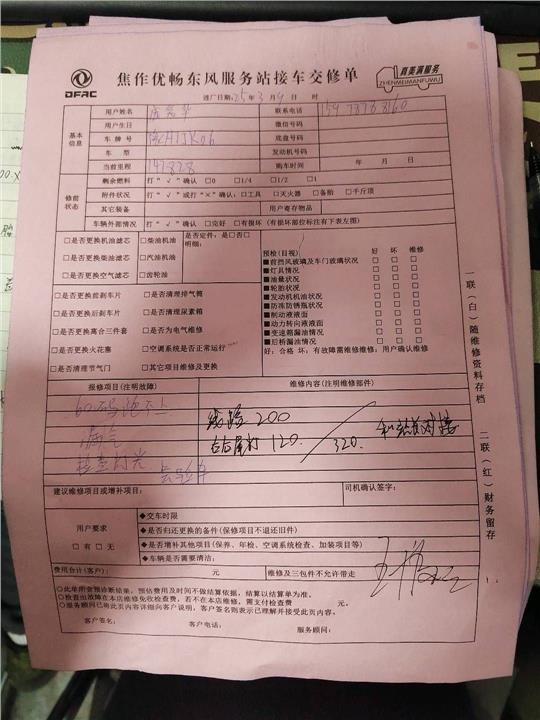 DFAC
焦作优畅东风服务站接车交修单
真美满服务
ZHENMEIMANFUWU
进厂日期:25年3月9日 时
基本信息
用户姓名 联系电话
用户生日 微信号码
车牌号 底盘号码
车型 发动机号码
当前里程 141828 购车时间 年 月 日
修前状态
剩余燃料 打“√”确认 □0 □1/4 □1/2 □1
附件状况 打“√”或打“×”确认:□工具 □灭火器 □备胎 □千斤顶
其它装备 用户寄存物品
车辆外部情况 打“√”确认 □完好 □有损坏(有损坏部位标注有下表左图)
□是否更换机油滤芯 □柴油机油 是否定件:是□否□
明细:
□是否更换柴油滤芯 □汽油机油
□是否更换空气滤芯 □齿轮油
□是否更换前刹车片 □是否清理排气筒
□是否更换后刹车片 □是否清理尿素箱
□是否更换离合三件套 □是否为电气维修
□是否更换火花塞 □空调系统是否正常运行
□是否清理节气门 □其它项目维修及更换
预检(目视) 好 坏 维修
■前挡风玻璃及车门玻璃状况 □ □ □
■灯具情况 □ □ □
■油量状况 □ □ □
■轮胎状况 □ □ □
■发动机机油状况 □ □ □
■防冻防锈瓶状况 □ □ □
■制动液液面 □ □ □
■动力转向液液面 □ □ □
■变速箱漏油情况 □ □ □
■后桥漏油情况 □ □ □
好:合格 坏:有故障需维修维修:用户确认维修
报修项目(注明故障) 维修内容(注明维修部件)
60码跑不上
漏气
检查灯光
线路 200
右后尾灯 120.
320.
建议维修项目或增补项目: 司机确认签字:
用户要求
□有 □无
◆交车时限
◆是否归还更换的备件(保修项目不退还旧件)
◆是否增补其他项目(保养、年检、空调系统检查、加装项目等)
◆车辆是否需要清洁:
费用合计(客户): 元 维修及三包件不允许带走
○此单所含预诊断结果,预估费用及时间不做结算依据,结算以结算单为准。
○检查出故障在本店维修免收检查费,若不在本店维修,需支付检查费 元。
○服务顾问已将此页内容详细向客户说明;客户签名则表示已理解并接受此页内容。
客户签名: 客户电话: 服务顾问:
一联(白)随维修资料存档
二联(红)财务留存